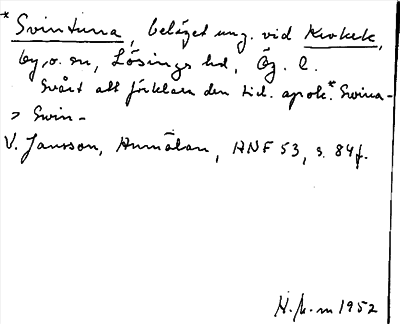 * Svintuna, beläget ung. vid Krokek,
by, o. sn, Lösings hd, Ög. l.
Svårt att förklara den tid. apok. *Svina-
> Svin-
V. Jansson, Anmälan, ANF 53, s. 84 f.
H. 1952